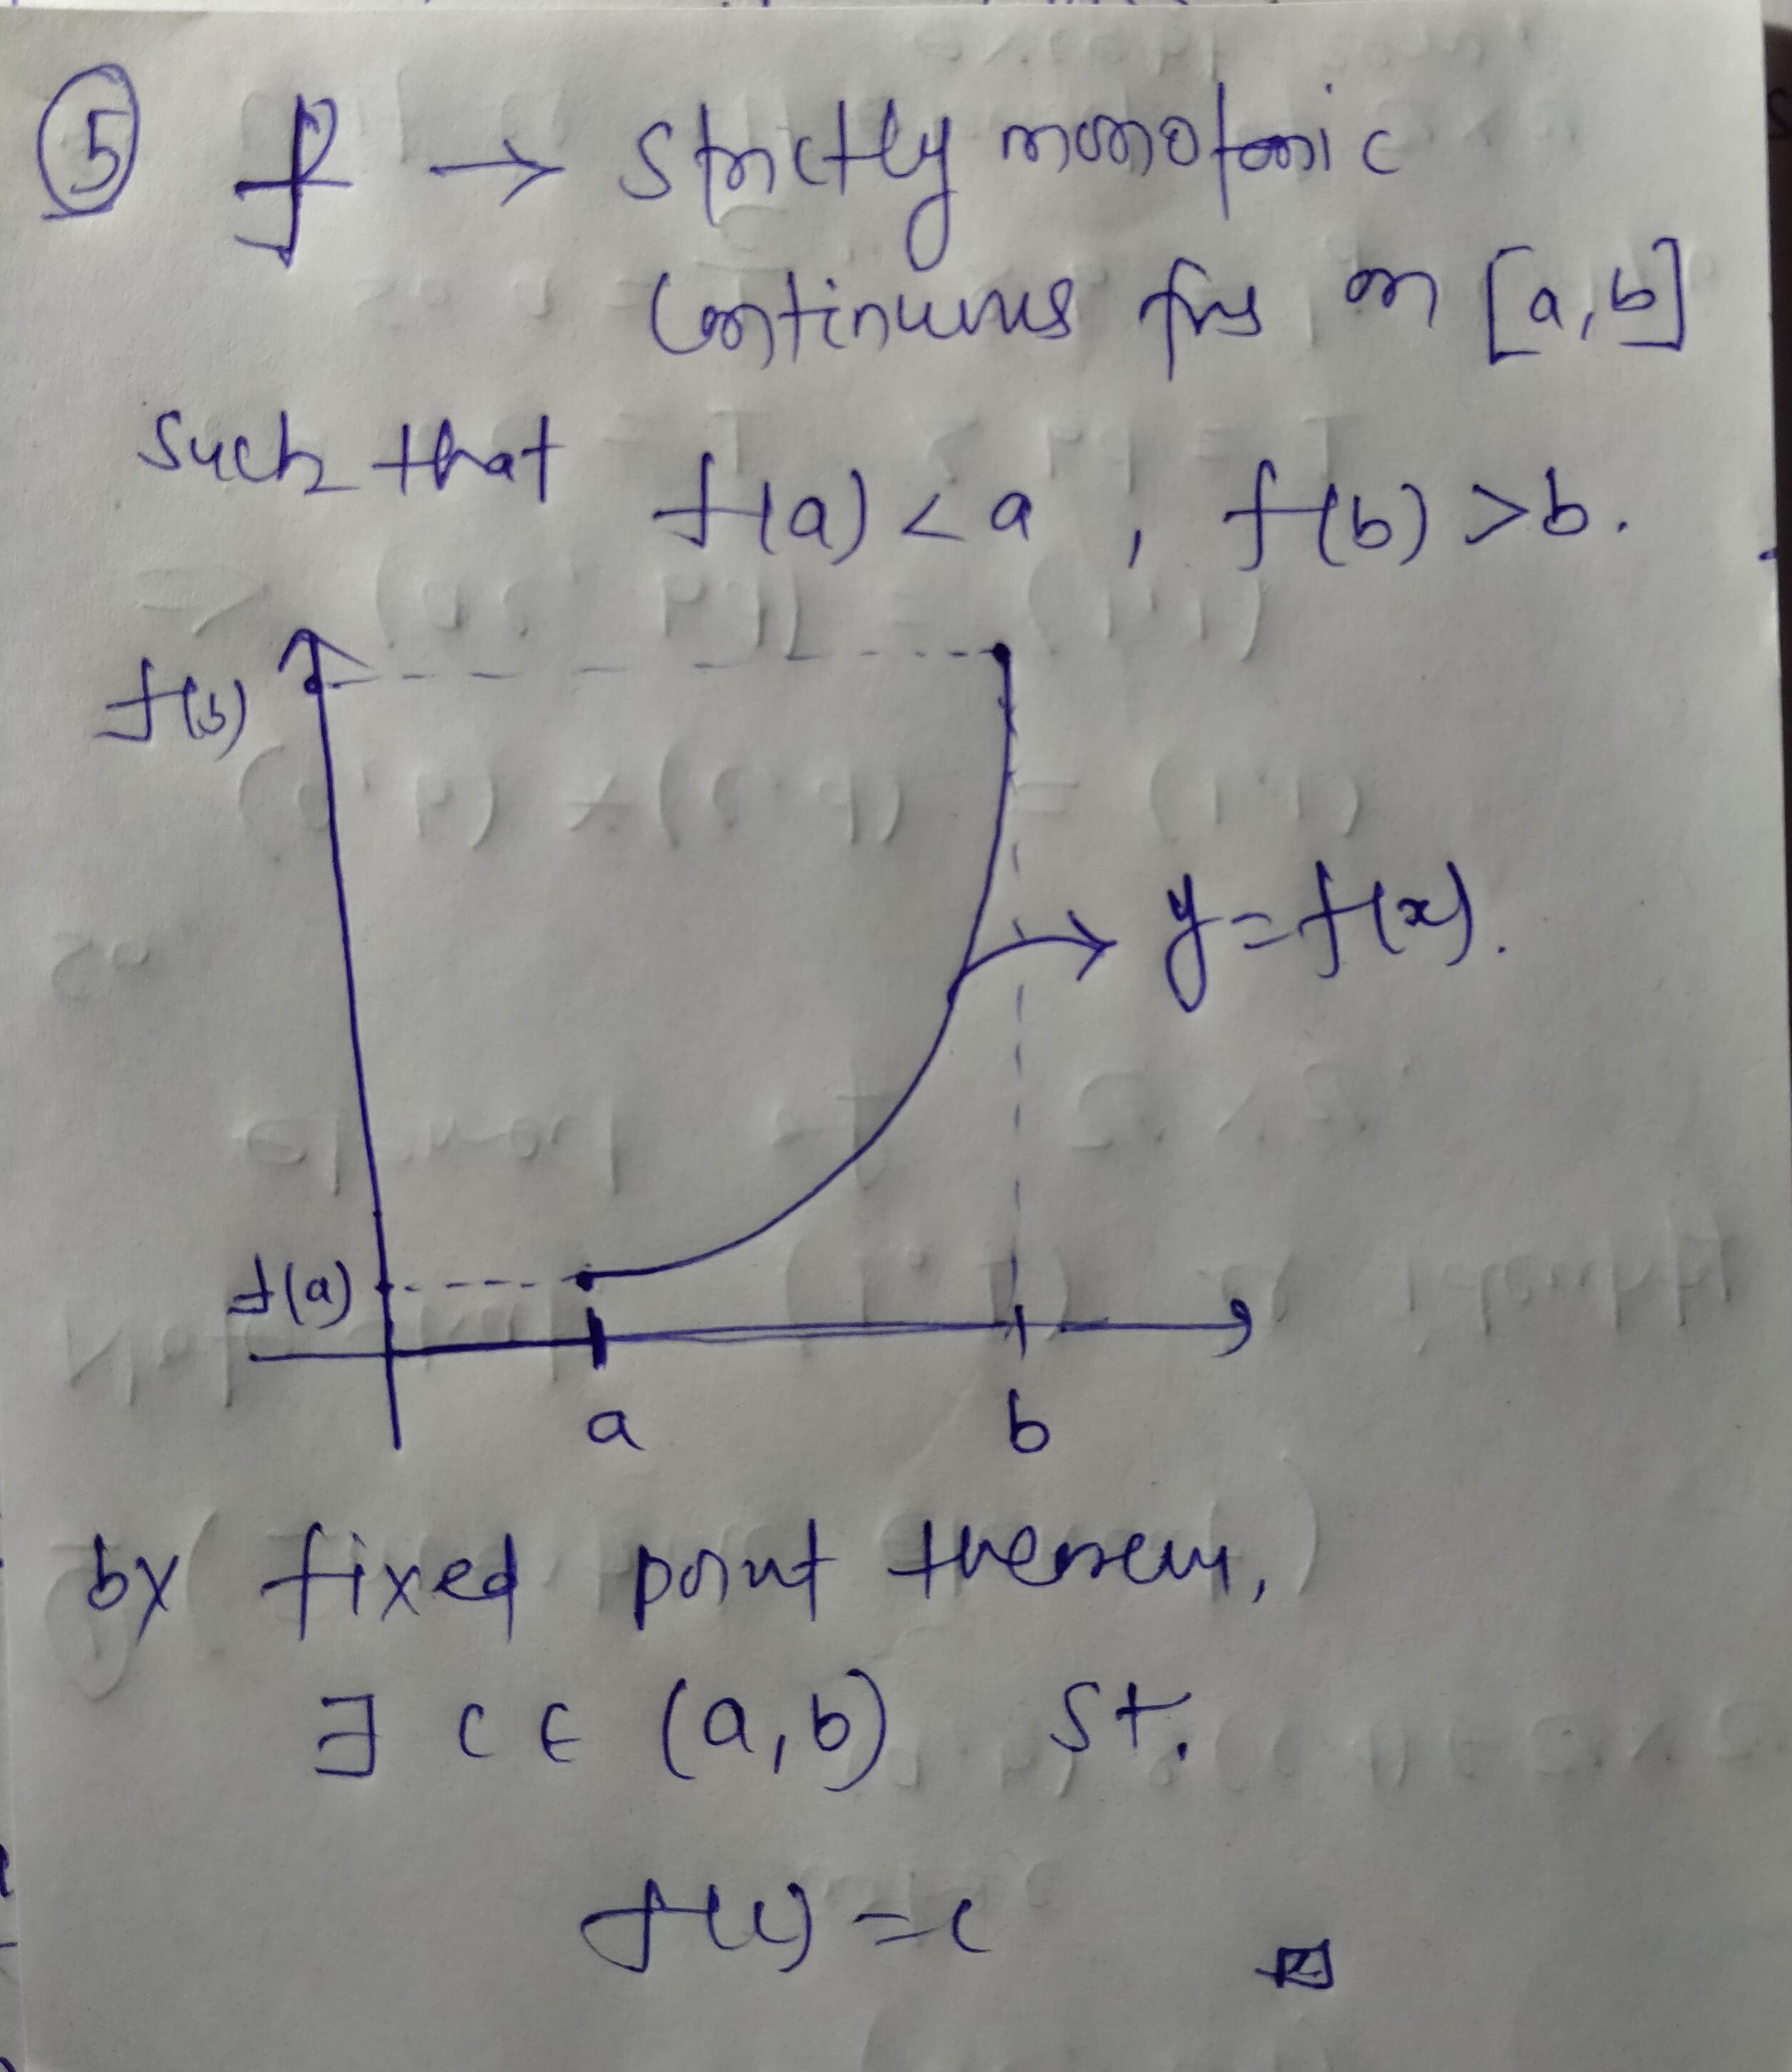 ⑤ f → strictly monotonic
continuous fns on [a,b]
such that f(a) < a , f(b) > b.
f(b)
y = f(x).
f(a)
a b
by fixed point theorem,
∃ c ∈ (a,b) st.
f(c) = c